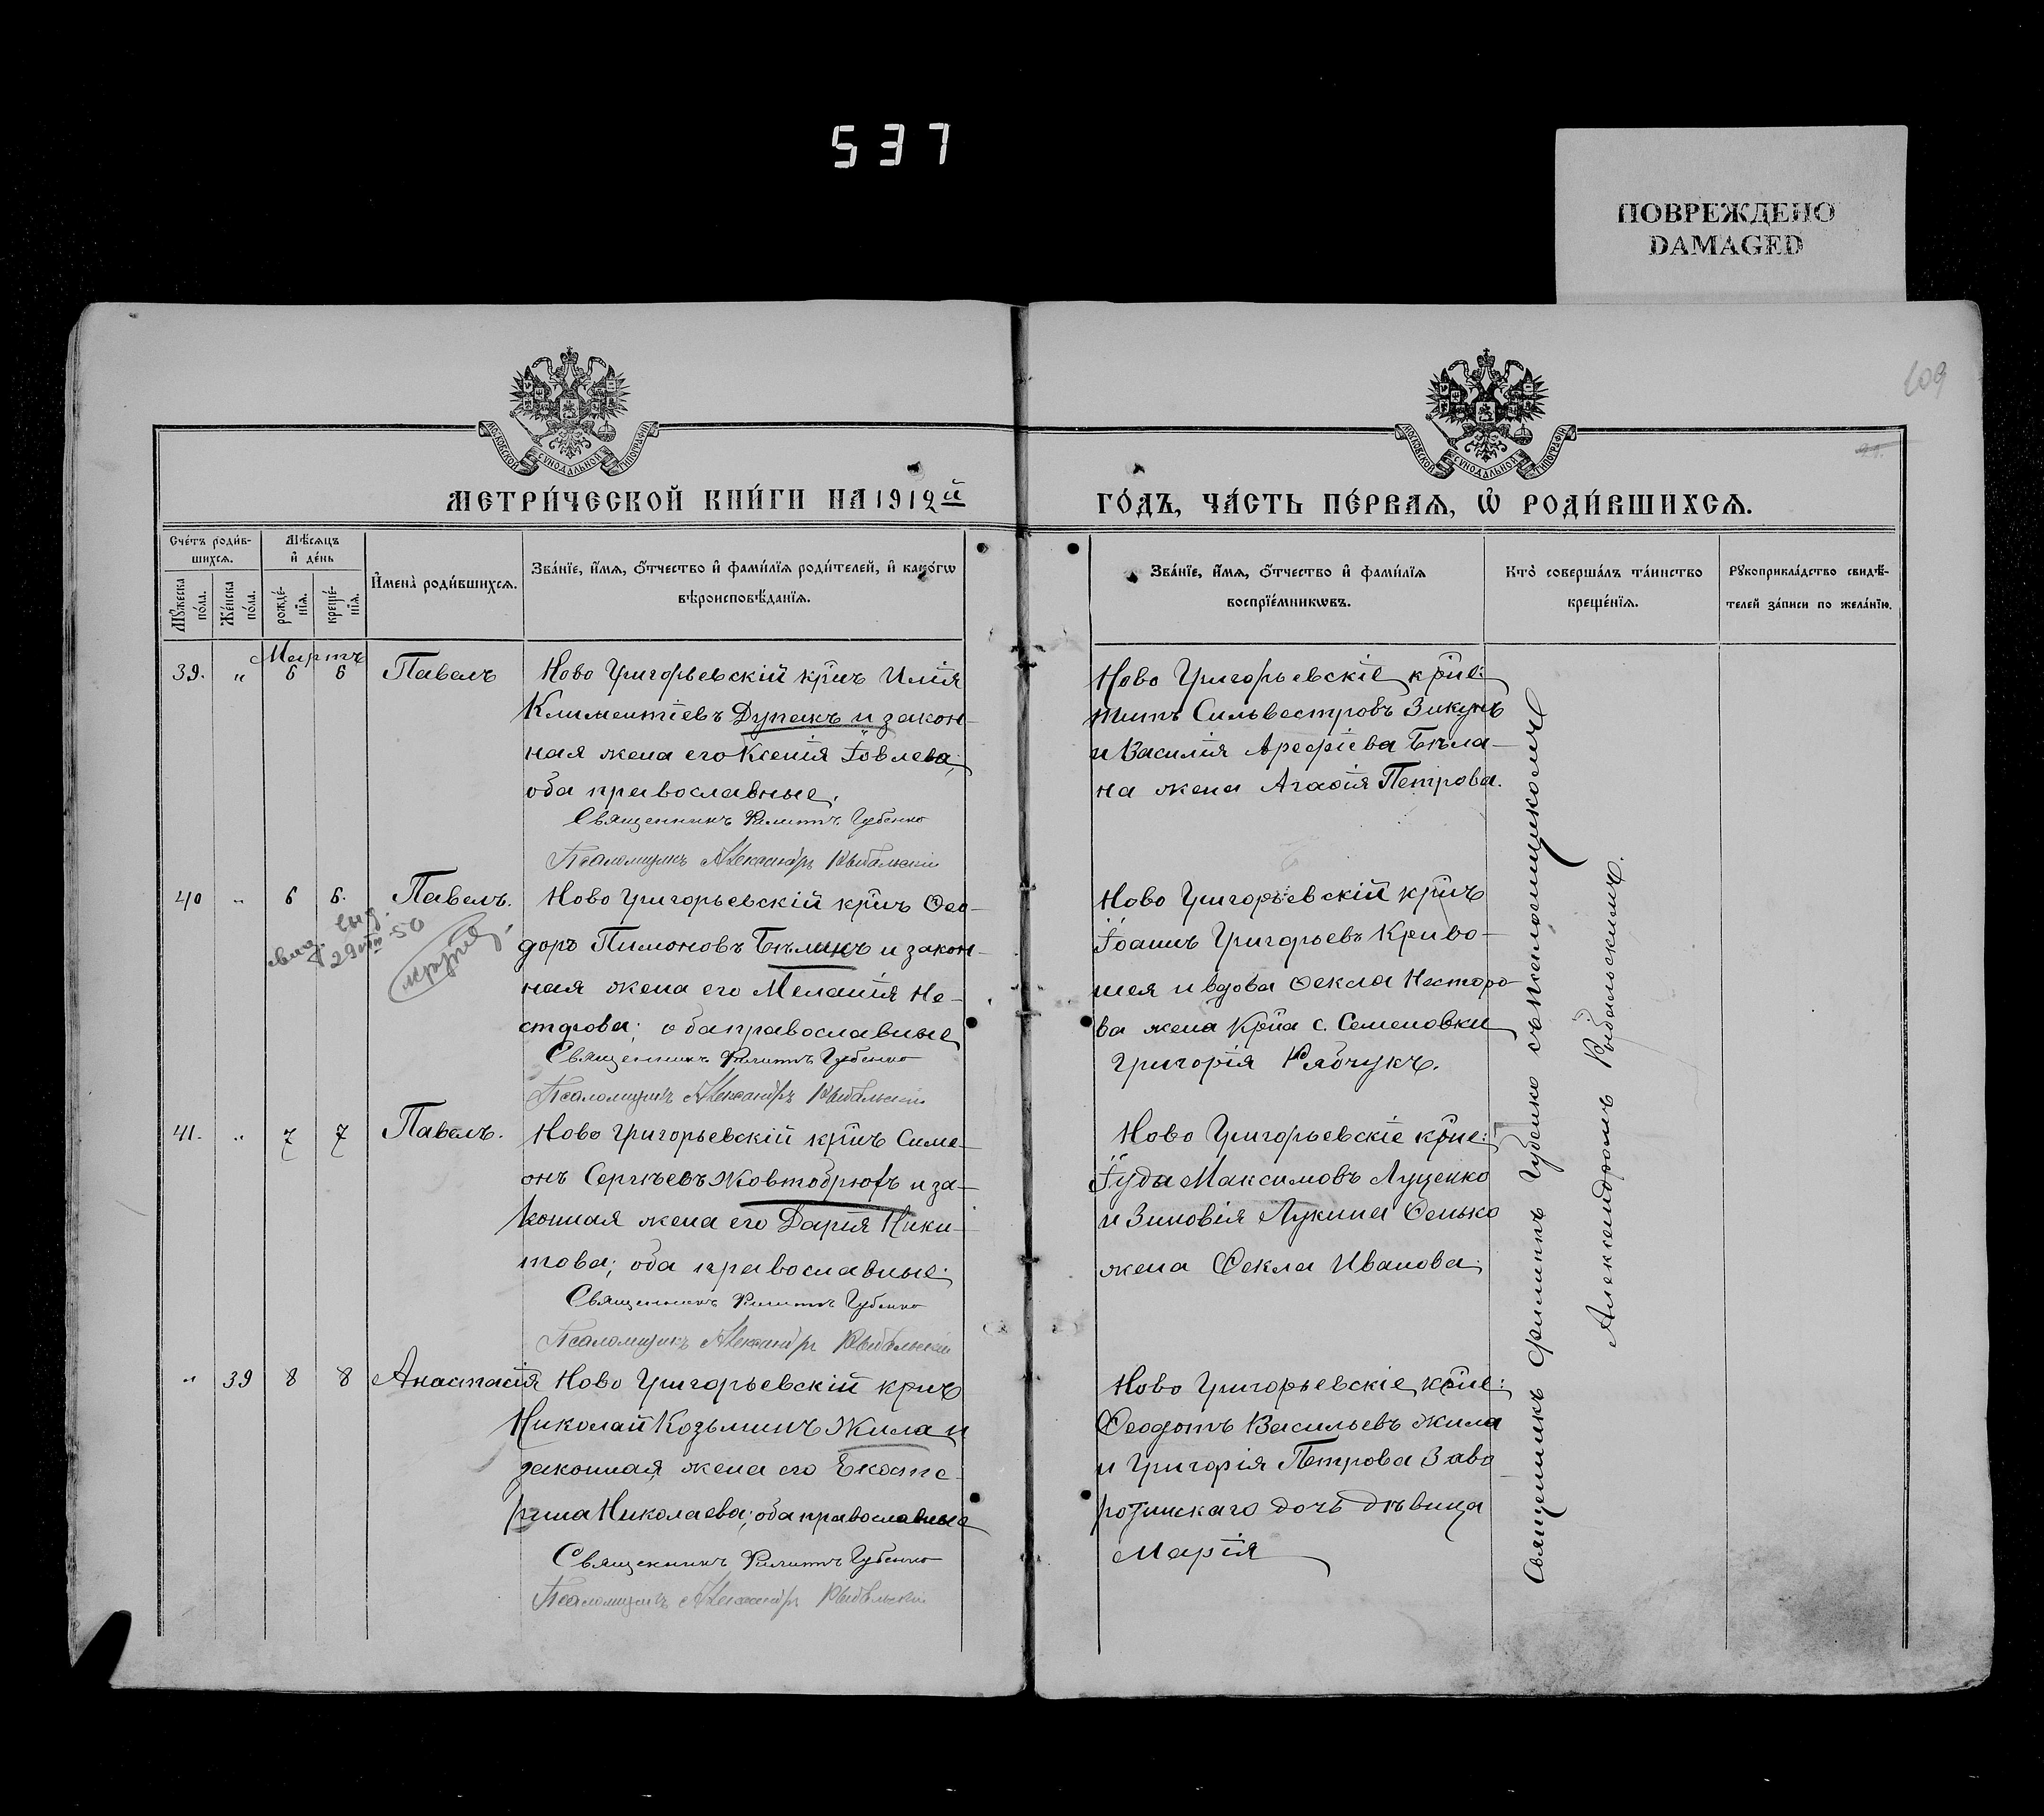 537
ПОВРЕЖДЕНО
DAMAGED
109
МОСКОВСКОЙ СѴНОДАЛЬНОЙ ТИПОГРАФІИ
МОСКОВСКОЙ СѴНОДАЛЬНОЙ ТИПОГРАФІИ
МЕТРИ́ЧЕСКОЙ КНИ́ГИ НА 1912й
ГО́ДЪ, ЧА́СТЬ ПЕ́РВАѦ, Ѡ҆ РОДИ́ВШИХСѦ.
Сче́тъ роди́в-
шихсѧ.
Мѣ́сѧцъ
и҆ де́нь
Мꙋ́жеска по́ла.
Же́нска по́ла.
рожде́-нїѧ.
креще́-нїѧ.
И҆мена̀ роди́вшихсѧ.
Зва́нїе, и҆́мѧ, ѻ҆́тчество и҆ фами́лїѧ роди́телей, и҆ како́гѡ
вѣроисповѣ́данїѧ.
Зва́нїе, и҆́мѧ, ѻ҆́тчество и҆ фами́лїѧ
воспрїе́мникѡвъ.
Кто̀ соверша́лъ та́инство
креще́нїѧ.
Рꙋкоприкла́дство свидѣ́-
телей за́писи по жела́нїю.
Мартъ
39. " 6 6 Павелъ
Ново Григорьевскій кр̃нъ Илія
Климентіевъ Дупакъ и закон-
ная жена его Ксенія Іовлева;
оба православные.
Священникъ Филиппъ Губенко
Псаломщикъ Александръ Рыбальскій
Ново Григорьевскіе кр̃не:
Титъ Сильвестровъ Зикунъ
и Василія Арефіева Бѣла-
на жена Агафія Петрова.
40 " 6 6. Павелъ.
Ново Григорьевскій кр̃нъ Ѳео-
доръ Пимоновъ Бѣликъ и закон-
ная жена его Меланія Не-
строва; оба православные
Священникъ Филиппъ Губенко
Псаломщикъ Александръ Рыбальскій
Ново Григорьевскій кр̃нъ
Іоаннъ Григорьевъ Криво-
шея и вдова Ѳекла Несторо-
ва жена кр̃на с. Семеновки
Григорія Рябчукъ.
41. " 7 7 Павелъ.
Ново Григорьевскій кр̃нъ Симе-
онъ Сергѣевъ Жовтобрюхъ и за-
конная жена его Дарія Ники-
това; оба православные.
Священникъ Филиппъ Губенко
Псаломщикъ Александръ Рыбальскій
Ново Григорьевскіе кр̃не:
Іуда Максимовъ Луценко
и Зиновія Лукина Сенько
жена Ѳекла Иванова.
" 39 8 8 Анастасія
Ново Григорьевскій кр̃нъ
Николай Козьминъ Жила и
законная жена его Екате-
рина Николаева; оба православные
Священникъ Филиппъ Губенко
Псаломщикъ Александръ Рыбальскій
Ново Григорьевскіе кр̃не:
Ѳеодотъ Васильевъ Жила
и Григорія Петрова Заво-
ротинскаго дочь дѣвица
Марія
Священникъ Филиппъ Губенко съ псаломщикомъ
Александромъ Рыбальскимъ.